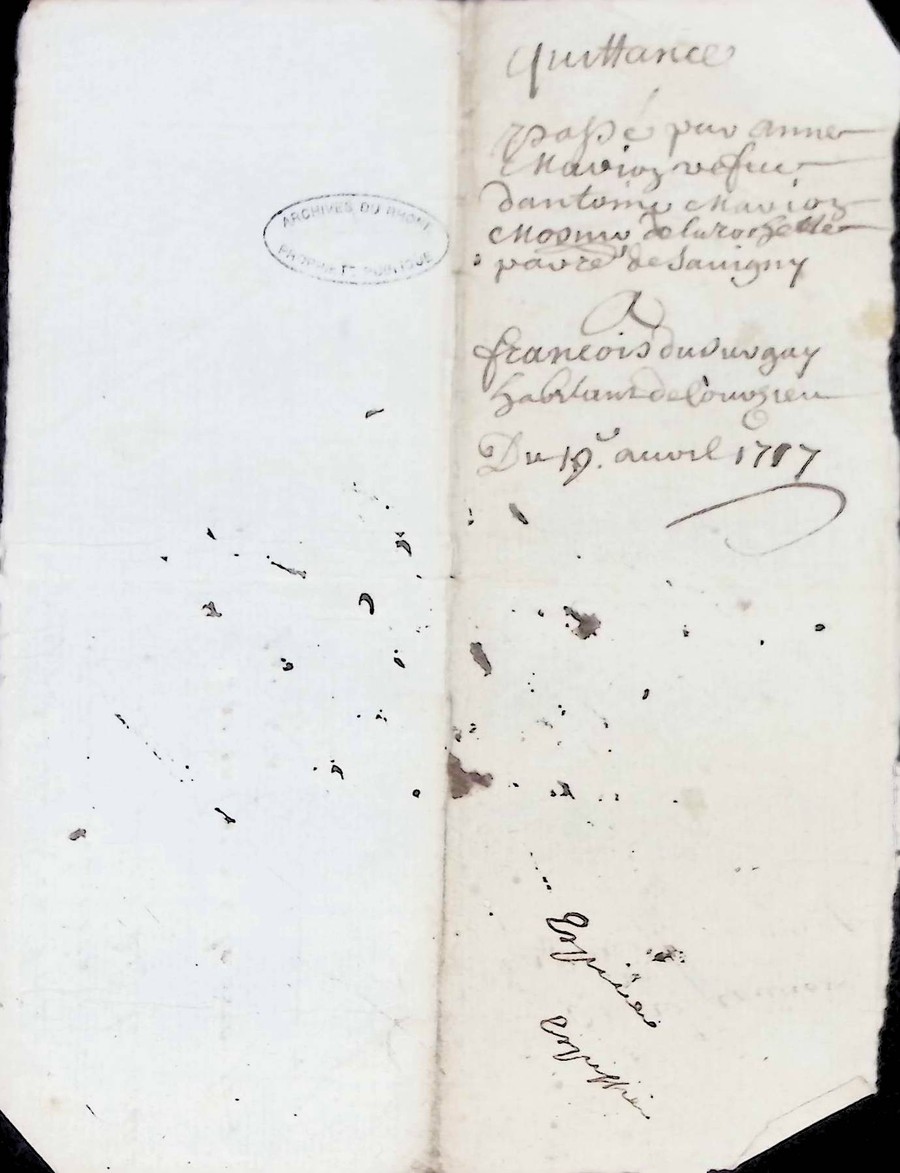 ARCHIVES DU RHONE
PROPRIETE PUBLIQUE
Quittance
passé par anne
Mavioz vefue
dantoine Mavioz
de larochette
paroē de Savigny
A
francois duSurgay
habitant de
Du 19e. auvril 1717